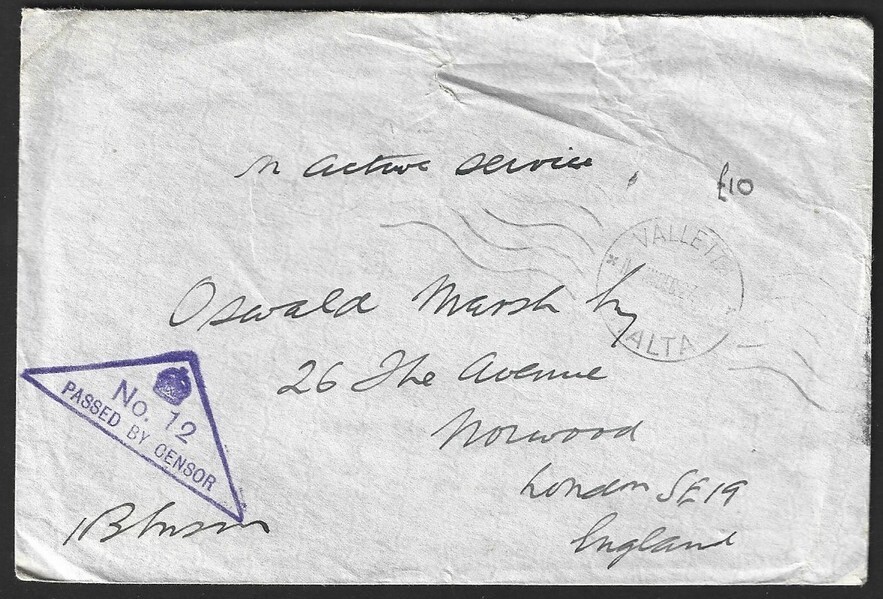 n Active Service
£10
VALLETTA
MALTA
Oswald Marsh
26 The Avenue
Norwood
London SE19
England
No. 12
PASSED BY CENSOR